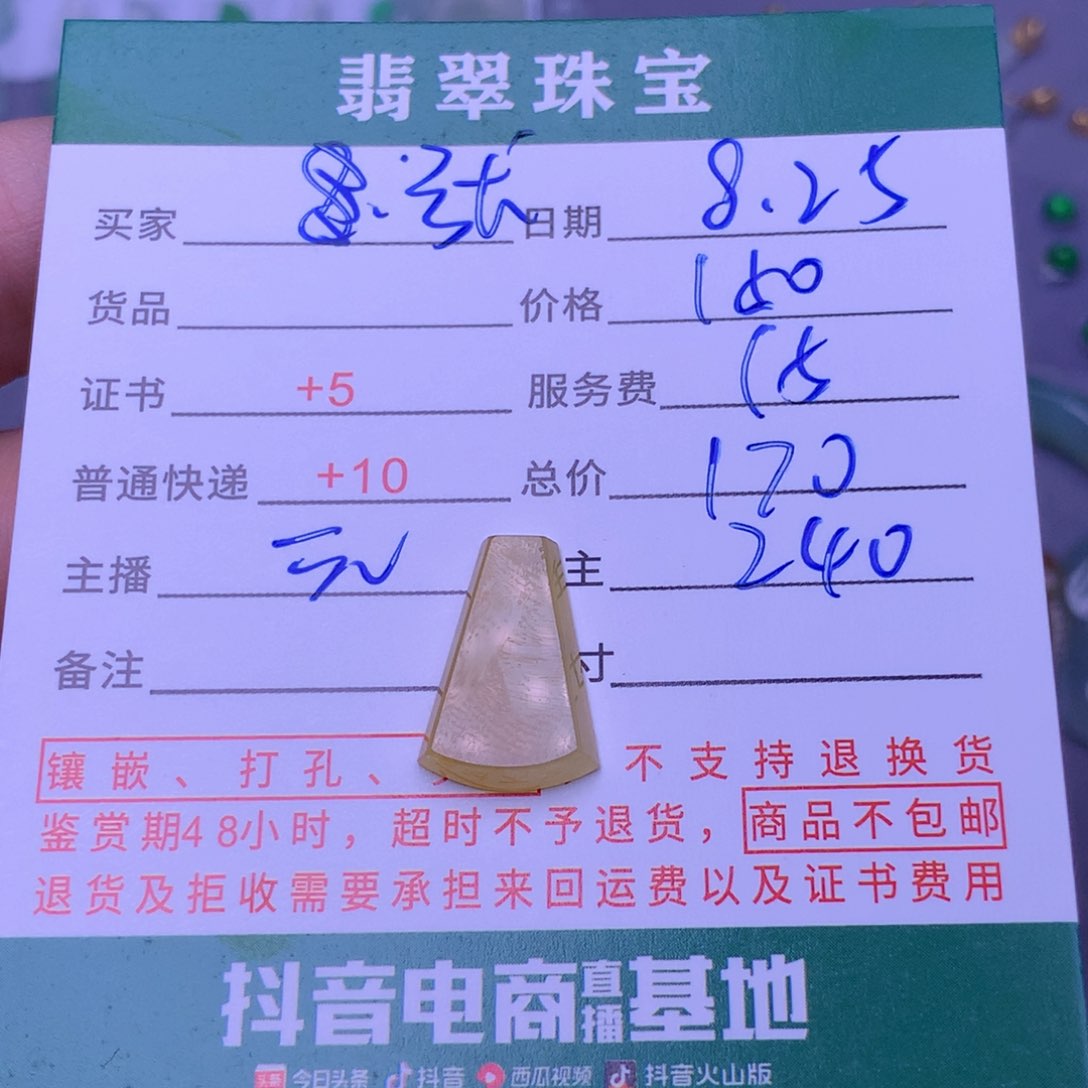 翡翠珠宝
买家 日期 8.25
货品 价格
证书 +5 服务费 15
普通快递 +10 总价 170
主播 主 240
备注 寸
镶嵌、打孔、 不支持退换货
鉴赏期48小时，超时不予退货，商品不包邮
退货及拒收需要承担来回运费以及证书费用
抖音电商直播基地
头条 今日头条 抖音 西瓜视频 抖音火山版